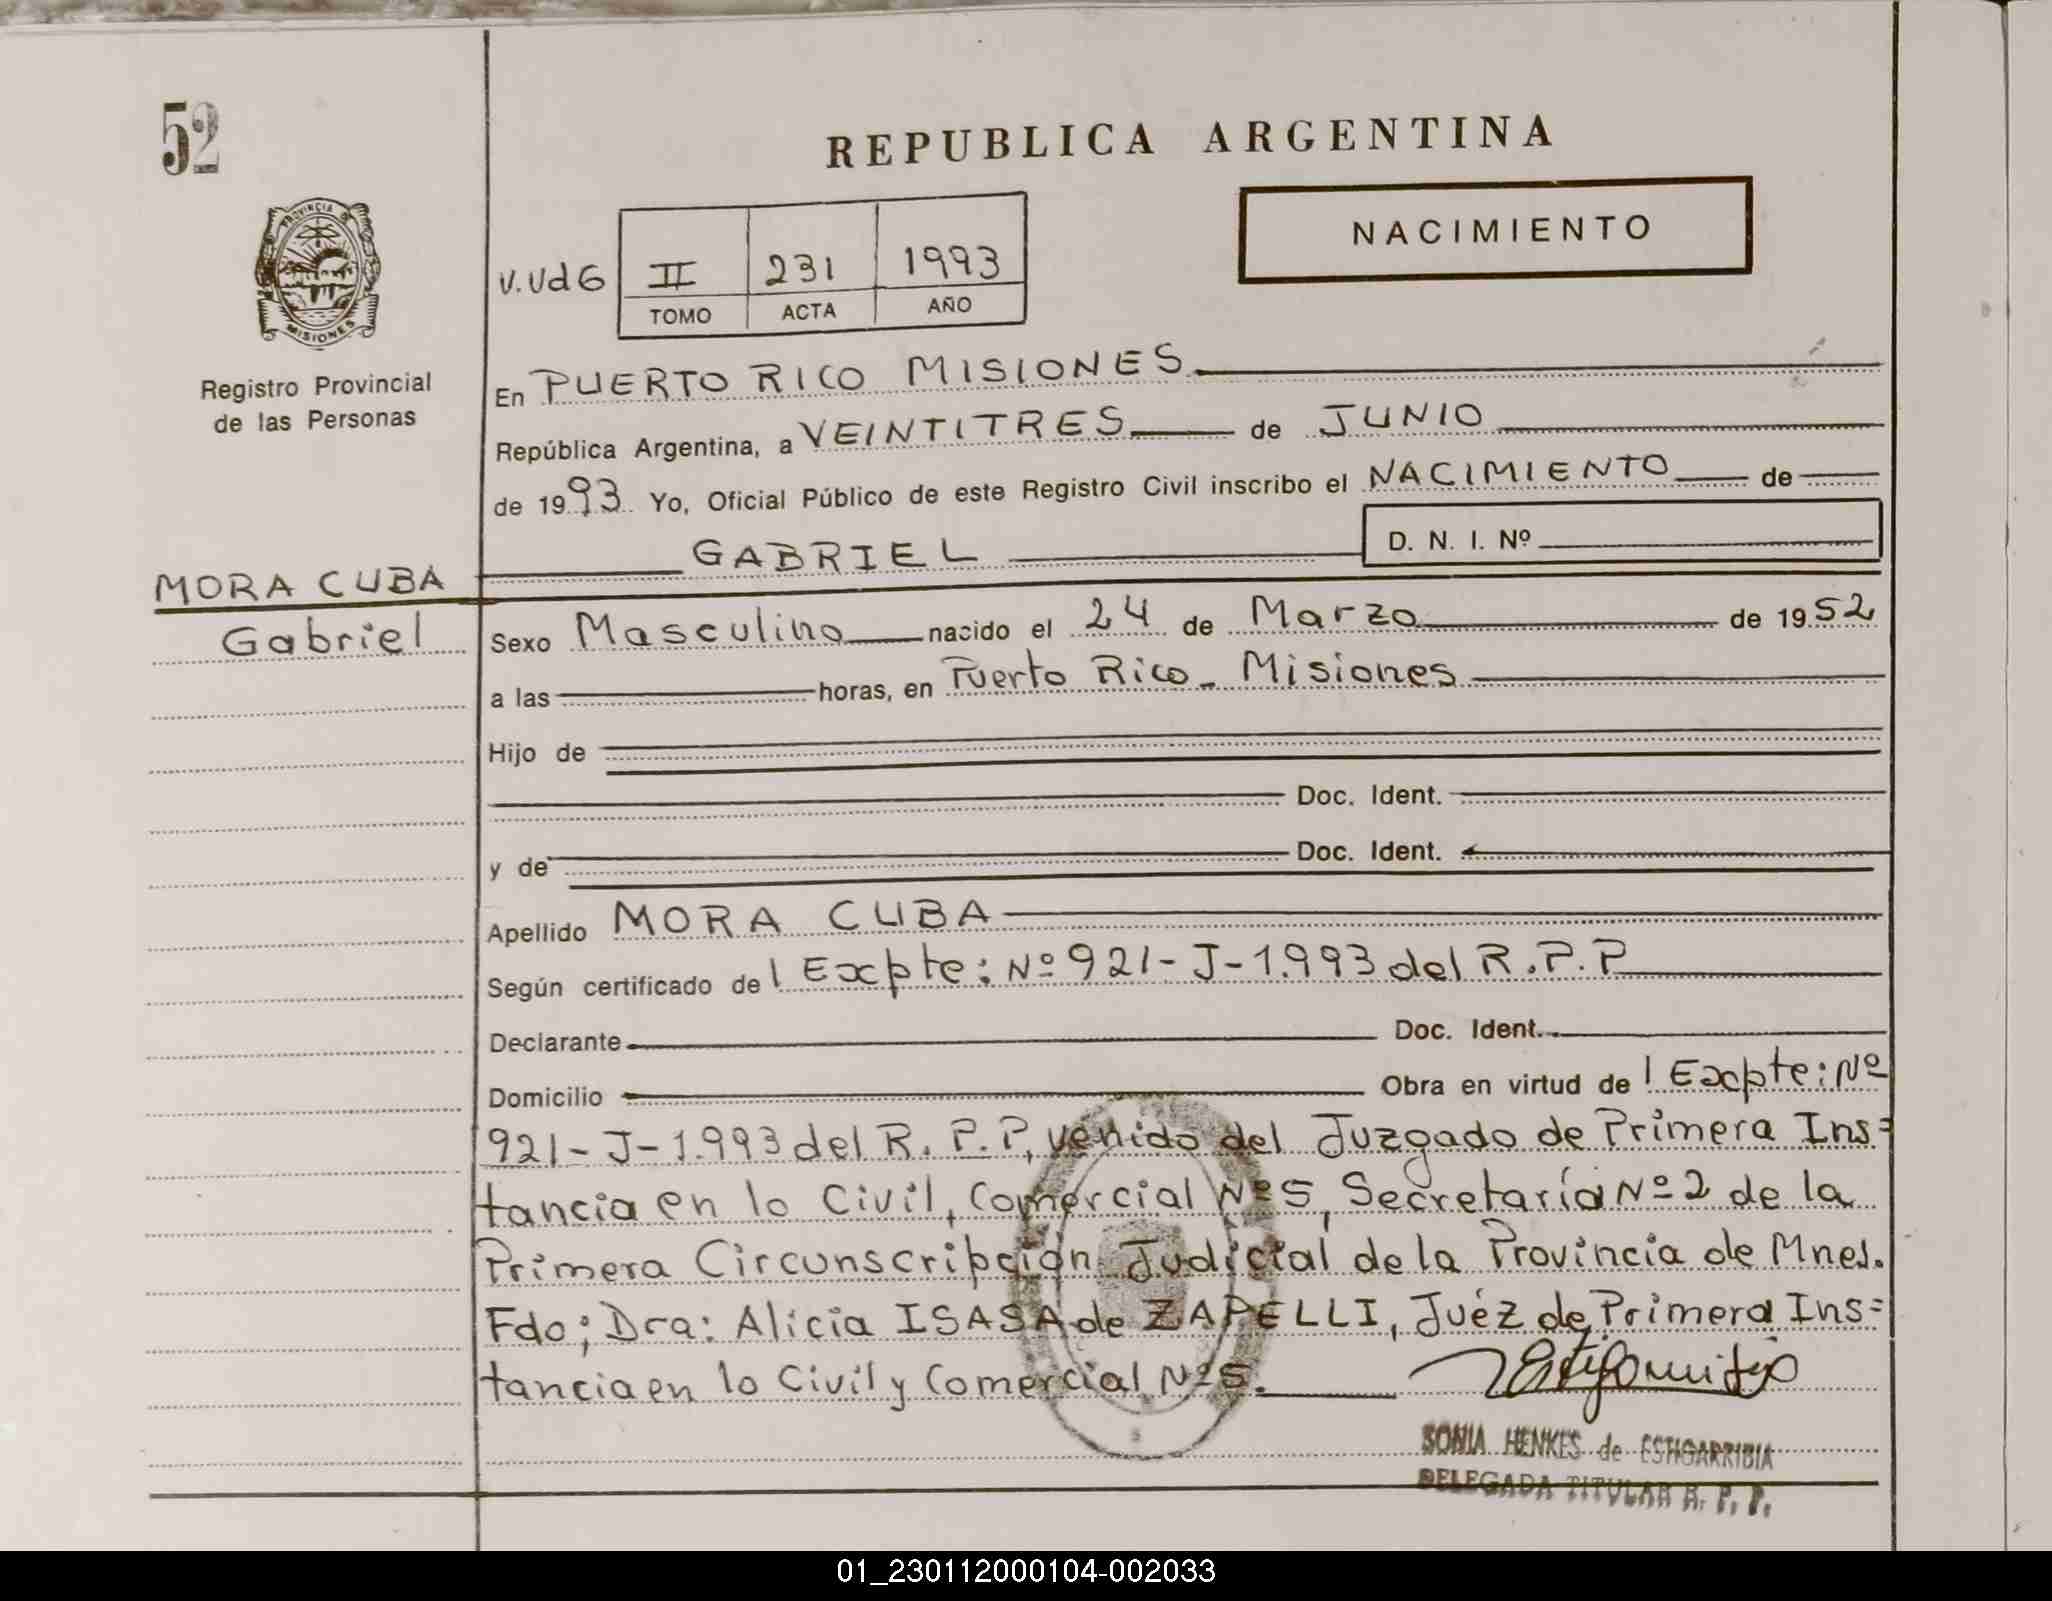 52
REPUBLICA ARGENTINA
PROVINCIA DE
MISIONES
Registro Provincial
de las Personas
NACIMIENTO
V.Ud6 II 231 1993
TOMO ACTA AÑO
En PUERTO RICO MISIONES
República Argentina, a VEINTITRES de JUNIO
de 1993 Yo, Oficial Público de este Registro Civil inscribo el NACIMIENTO de
GABRIEL D. N. I. Nº
MORA CUBA
Gabriel
Sexo Masculino nacido el 24 de Marzo de 1952
a las horas, en Puerto Rico - Misiones
Hijo de
Doc. Ident.
y de Doc. Ident.
Apellido MORA CUBA
Según certificado del Expte: Nº 921-J-1.993 del R.P.P
Declarante Doc. Ident.
Domicilio Obra en virtud del Expte: Nº
921-J-1.993 del R.P.P, venido del Juzgado de Primera Ins=
tancia en lo Civil, Comercial Nº5, Secretaría Nº2 de la
Primera Circunscripción Judicial de la Provincia de Mnes.
Fdo; Dra: Alicia ISASA de ZAPELLI, Juéz de Primera Ins=
tancia en lo Civil y Comercial Nº5.
SONIA HENKES de ESTIGARRIBIA
DELEGADA TITULAR R. P. P.
01_230112000104-002033